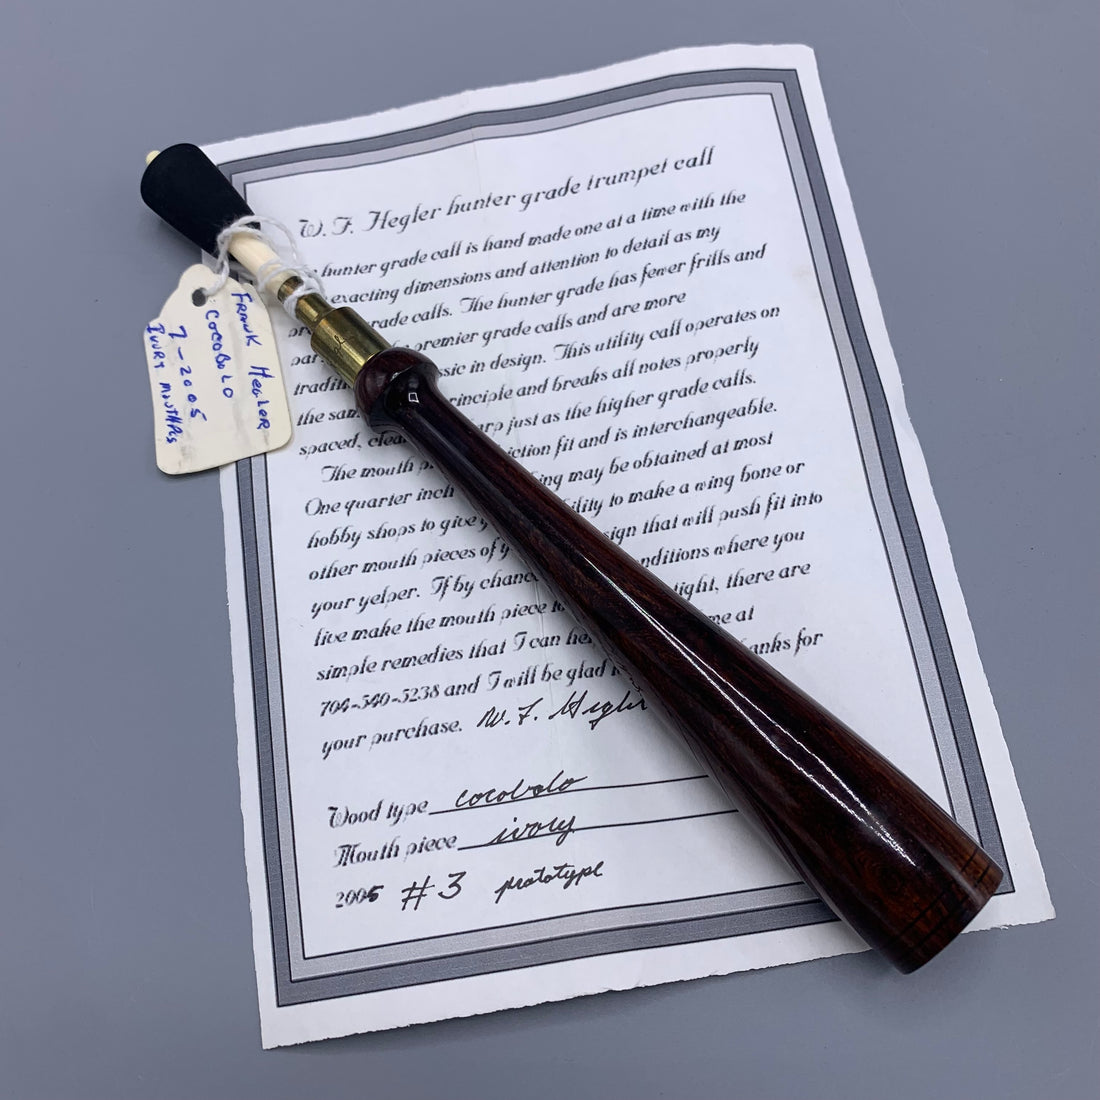 W. F. Hegler hunter grade trumpet call
hunter grade call is hand made one at a time with the
exacting dimensions and attention to detail as my
rade calls. The hunter grade has fewer frills and
par premier grade calls and are more
tradit ssic in design. This utility call operates on
the sam rinciple and breaks all notes properly
spaced, clea arp just as the higher grade calls.
The mouth p iction fit and is interchangeable.
One quarter inch ing may be obtained at most
hobby shops to give y ility to make a wing bone or
other mouth pieces of y sign that will push fit into
your yelper. If by chance nditions where you
live make the mouth piece t tight, there are
simple remedies that I can he me at
704-540-5238 and I will be glad anks for
your purchase. W. F. Hegler
Wood type cocobolo
Mouth piece ivory
2005 #3 prototype
FRANK HEGLER
COCOBOLO
7-2005
IVORY MOUTHPCS